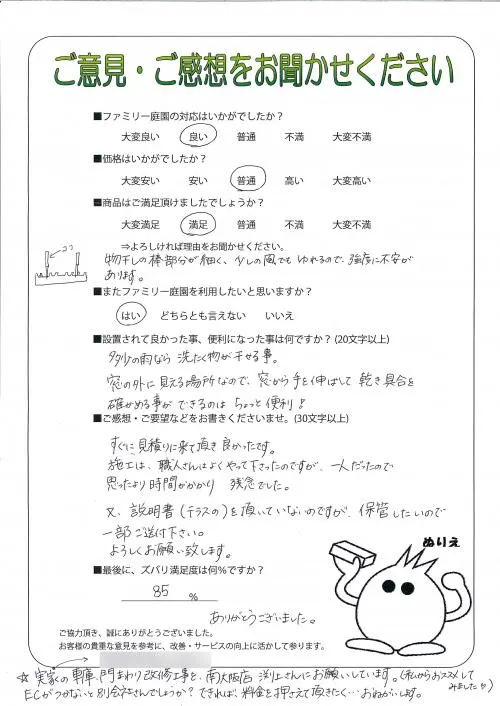 ご意見・ご感想をお聞かせください
■ファミリー庭園の対応はいかがでしたか？
大変良い 良い 普通 不満 大変不満
■価格はいかがでしたか？
大変安い 安い 普通 高い 大変高い
■商品はご満足頂けましたでしょうか？
大変満足 満足 普通 不満 大変不満
⇒よろしければ理由をお聞かせください。
ココ
物干しの棒部分が細く、少しの風でもゆれるので、強度に不安が
あります。
■またファミリー庭園を利用したいと思いますか？
はい どちらとも言えない いいえ
■設置されて良かった事、便利になった事は何ですか？(20文字以上)
多少の雨なら洗たく物が干せる事。
窓の外に見える場所なので、窓から手を伸ばして乾き具合を
確かめる事ができるのはちょっと便利！
■ご感想・ご要望などをお書きくださいませ。(30文字以上)
すぐに見積りに来て頂き良かったです。
施工は、職人さんはよくやって下さったのですが、一人だったので
思ったより時間がかかり残念でした。
又、説明書(テラスの)を頂いていないのですが、保管したいので
一部ご送付下さい。
よろしくお願い致します。
ぬりえ
■最後に、ズバリ満足度は何％ですか？
85 %
ありがとうございました。
ご協力頂き、誠にありがとうございました。
お客様の貴重な意見を参考に、改善・サービスの向上に活かして参ります。
☆実家の車庫、門まわり改修工事を、南大阪店 渕上さんにお願いしています。(私からおススメしてみましたが)
ECがつかないと別会社さんでしょうか？できれば、料金を押さえて頂きたく…おねがいします。